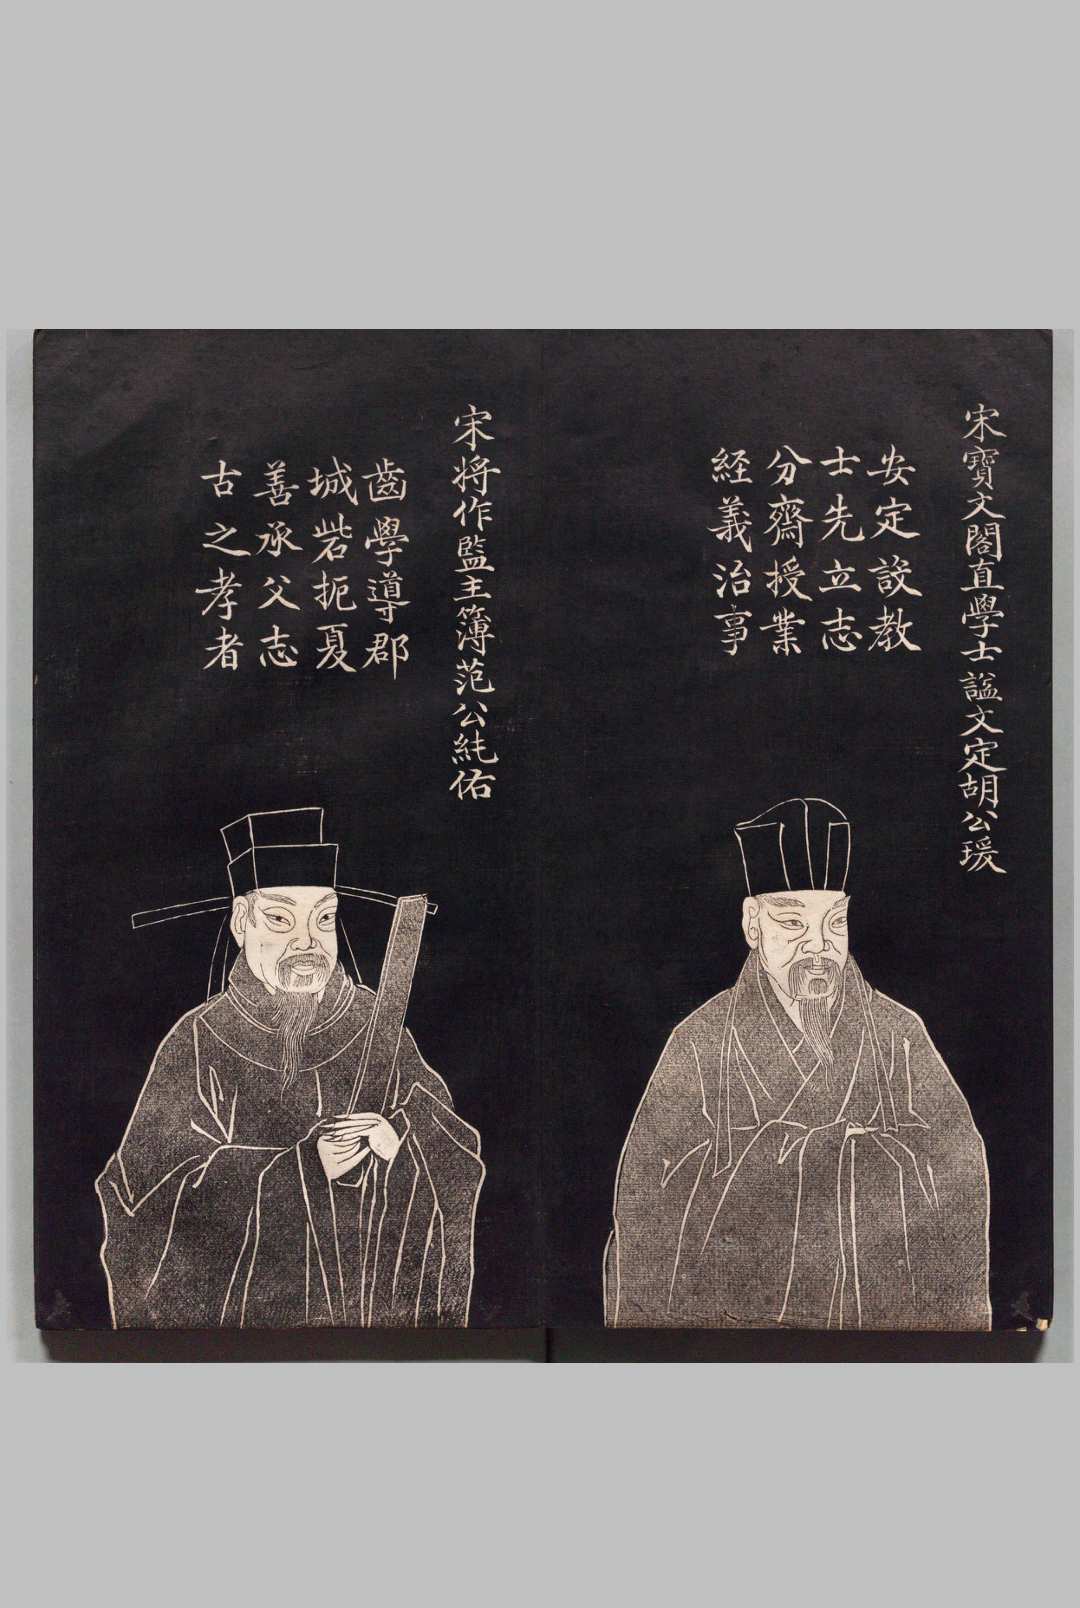 宋寶文閣直學士諡文定胡公瑗
安定設教
士先立志
分齋授業
経義治事
宋將作監主簿范公純佑
齒學導郡
城砦扼夏
善承父志
古之孝者